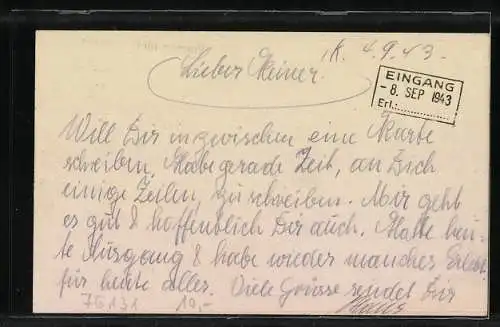 K. 4.9.43.
Lieber Heiner!
EINGANG
- 8. SEP 1943
Erl.:
Will Dir inzwischen eine Karte
schreiben, Habe gerade Zeit, an Dich
einige Zeilen, zu schreiben. Mir geht
es gut & hoffentlich Dir auch. Hatte heu-
te Ausgang & habe wieder manches
für heute alles. Viele Grüsse sendet Dir
76131 10,-